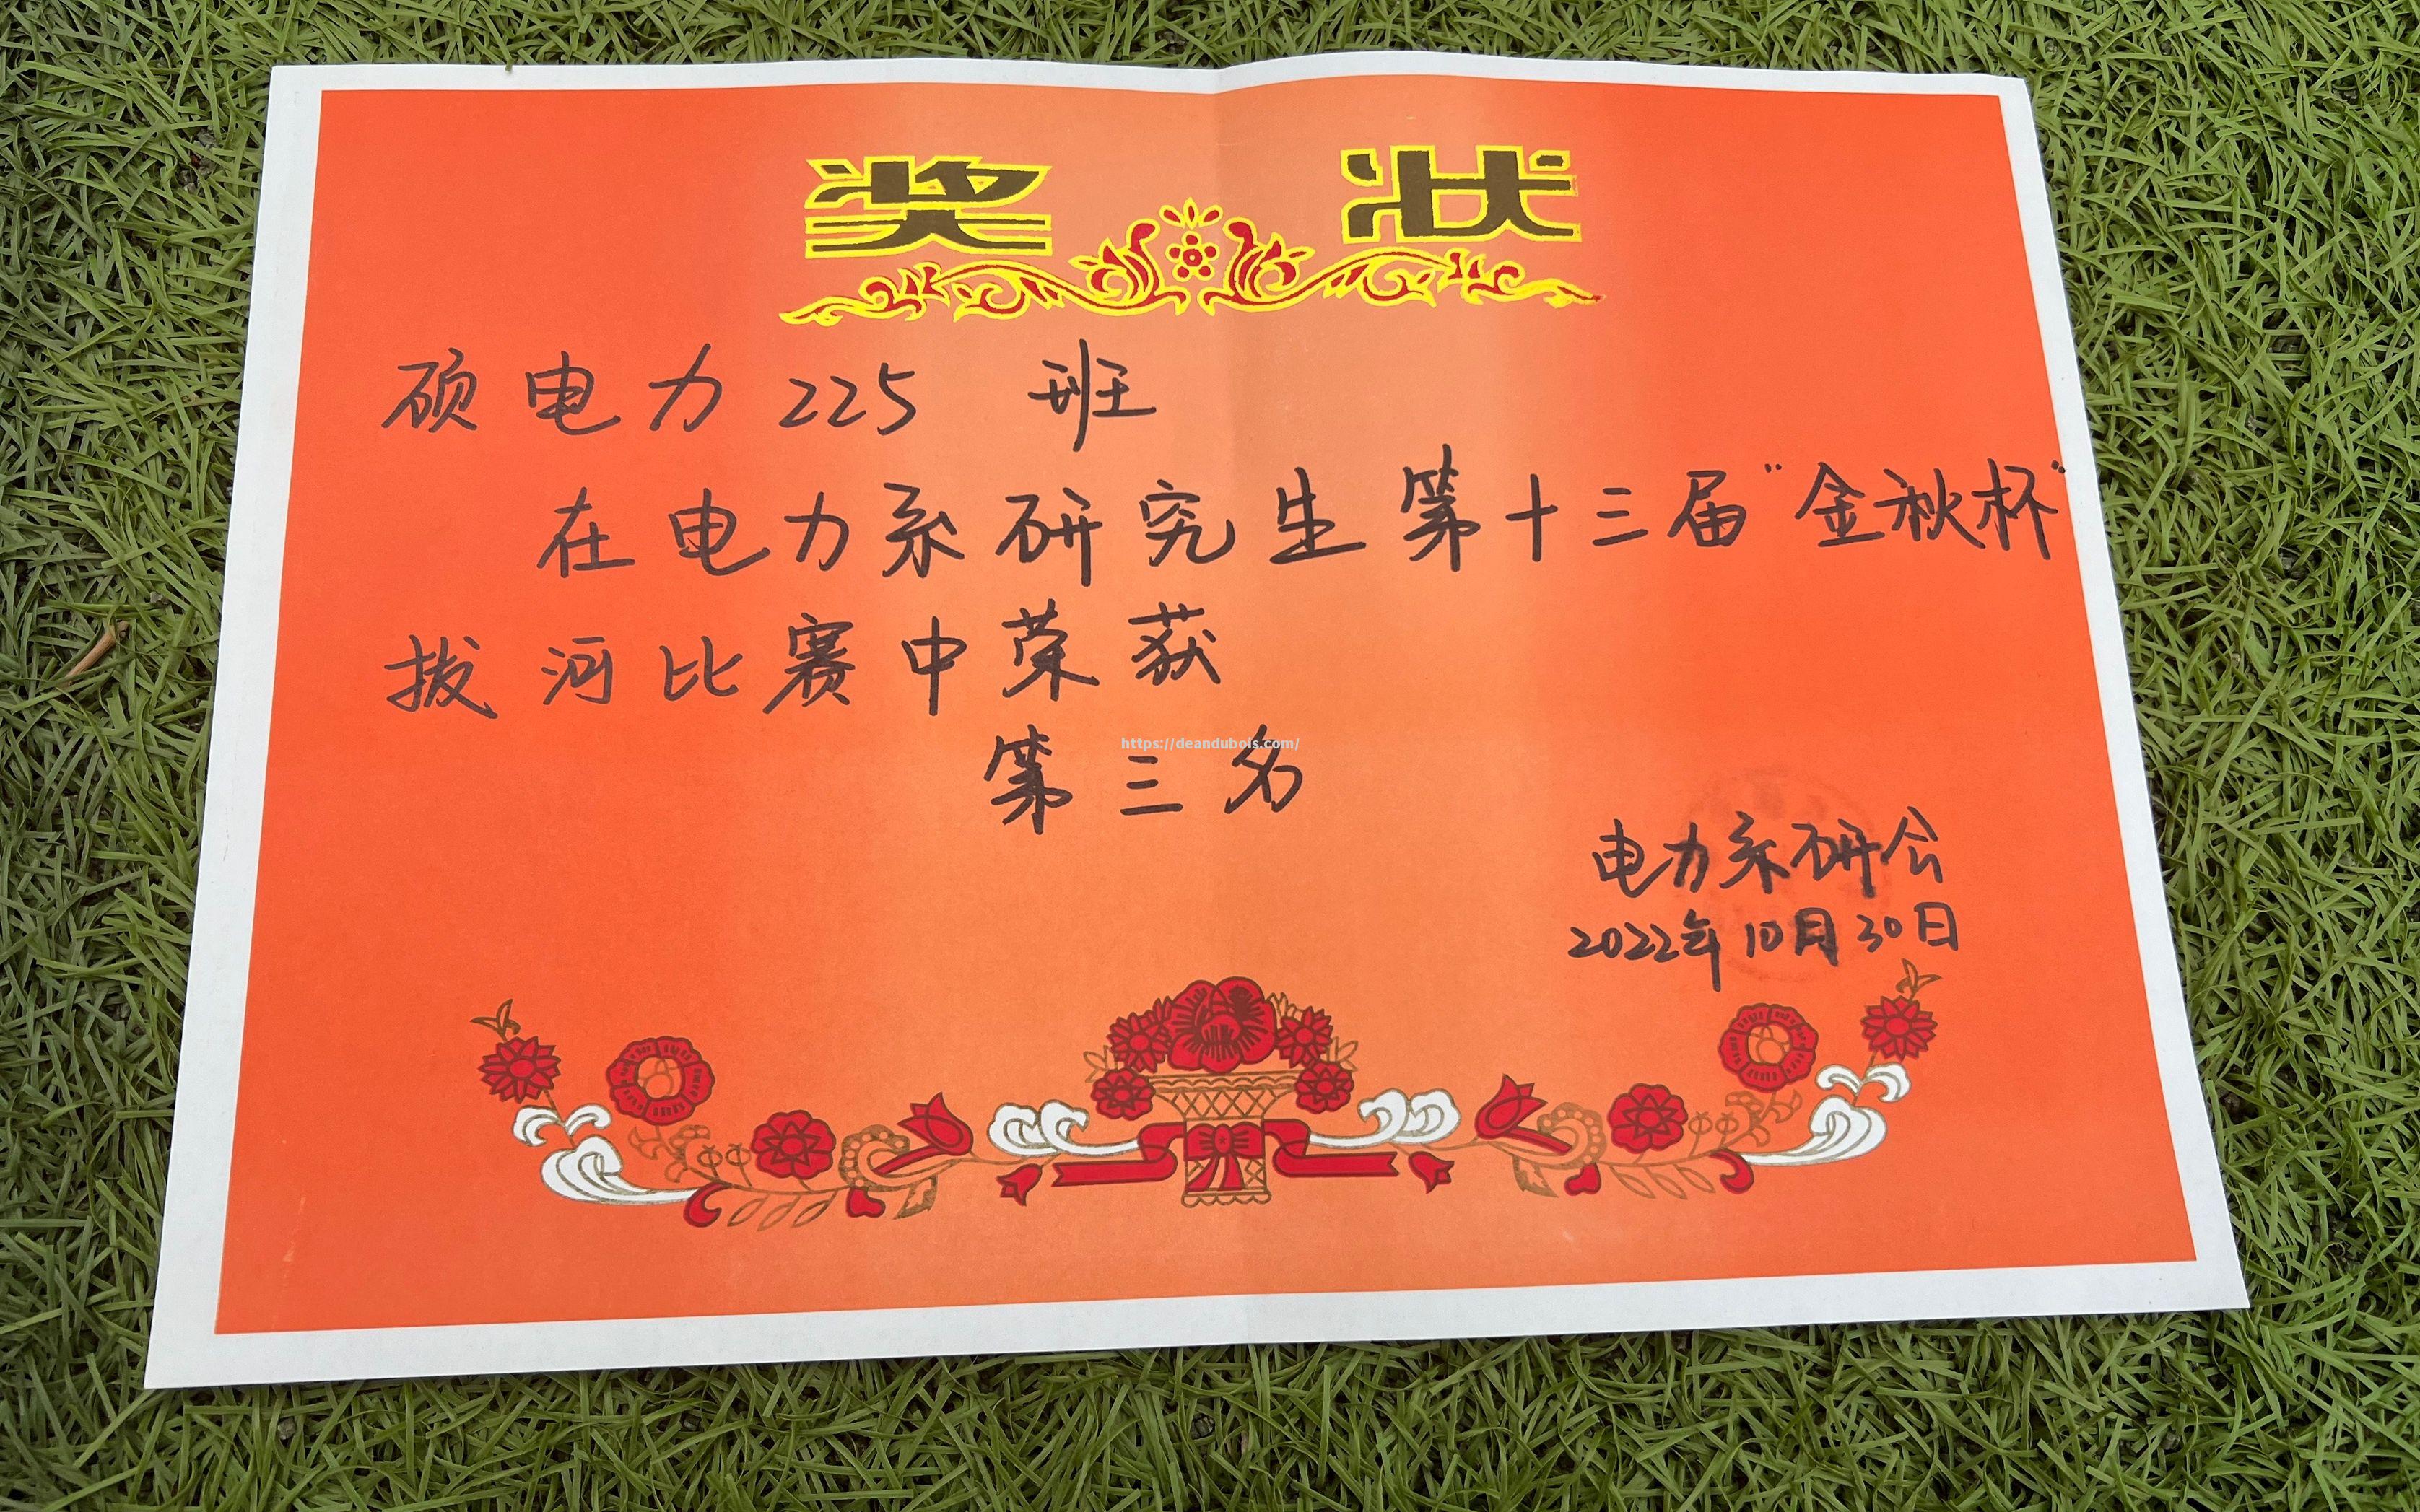 奖状
硕电力225 班
在电力系研究生第十三届“金秋杯”
拔河比赛中荣获
https://deandubois.com/
第三名
电力系研会
2022年10月30日